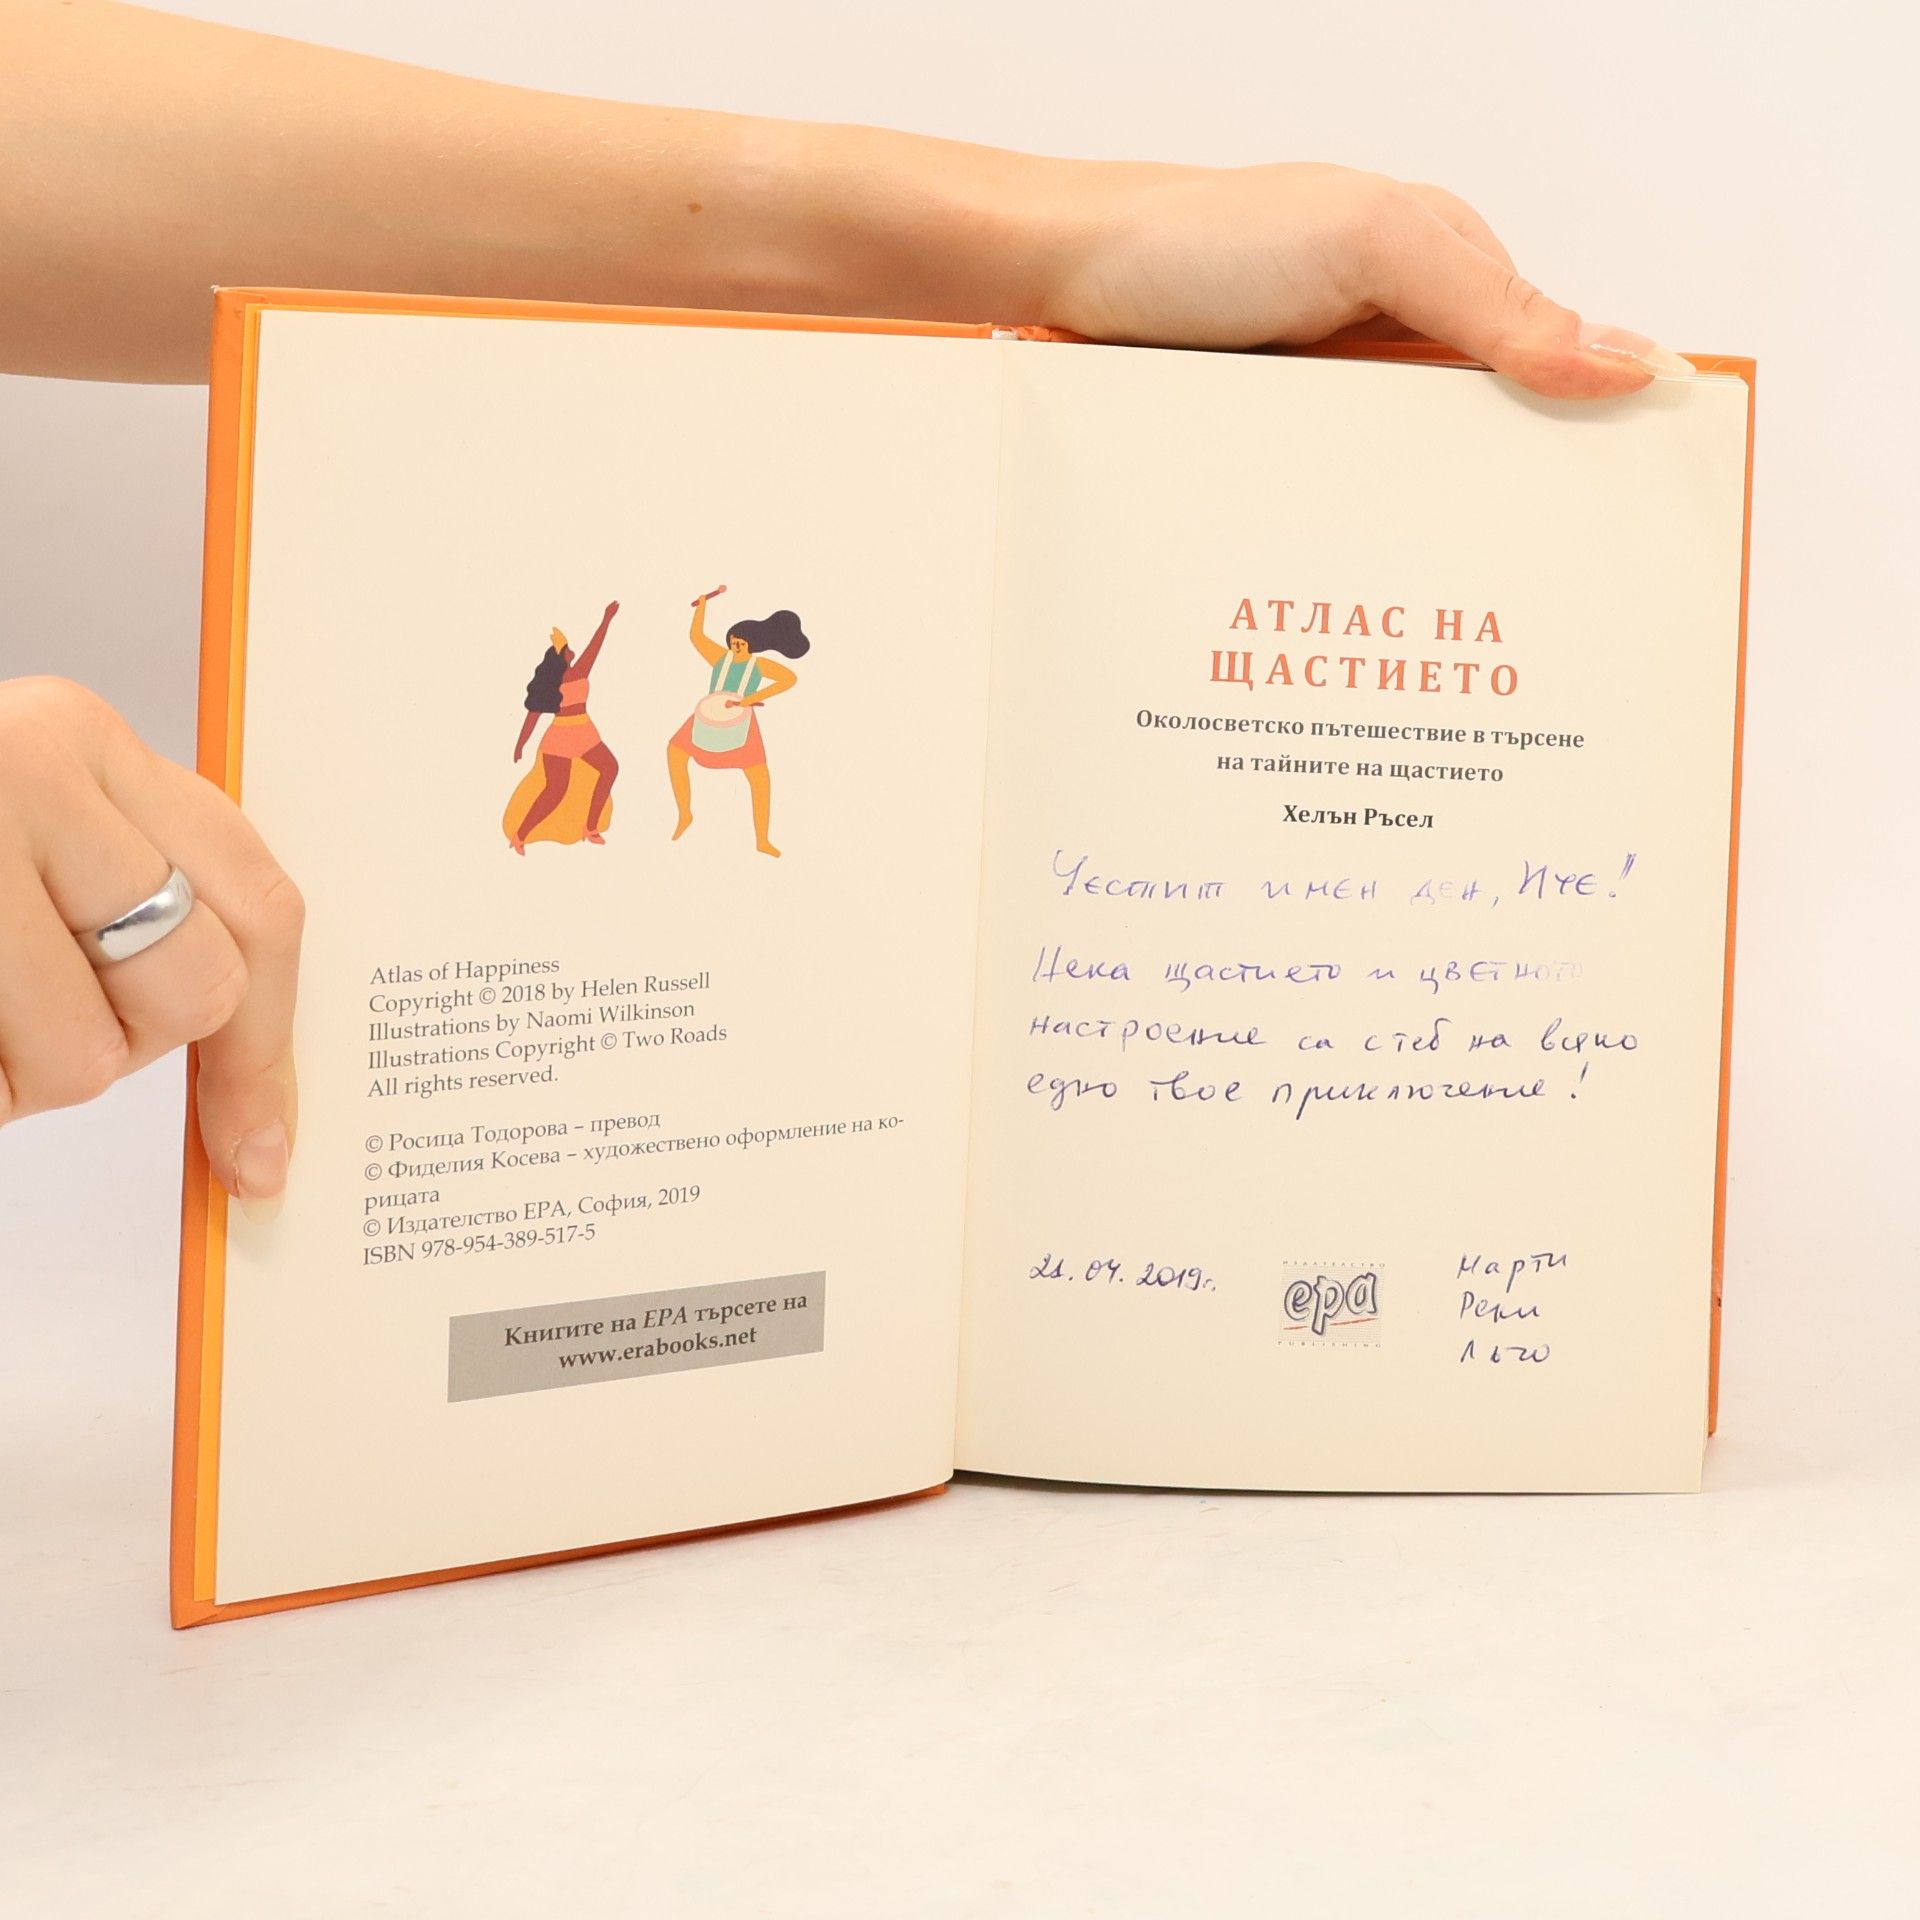 Atlas of Happiness
Copyright © 2018 by Helen Russell
Illustrations by Naomi Wilkinson
Illustrations Copyright © Two Roads
All rights reserved.
© Росица Тодорова – превод
© Фиделия Косева – художествено оформление на ко-
рицата
© Издателство ЕРА, София, 2019
ISBN 978-954-389-517-5
Книгите на ЕРА търсете на
www.erabooks.net
АТЛАС НА
ЩАСТИЕТО
Околосветско пътешествие в търсене
на тайните на щастието
Хелън Ръсел
Честит имен ден, Иче!
Нека щастието и цветното
настроение са с теб на всяко
едно твое приключение!
21.04.2019г.
ИЗДАТЕЛСТВО
ера
PUBLISHING
Марти
Рени
Льчо